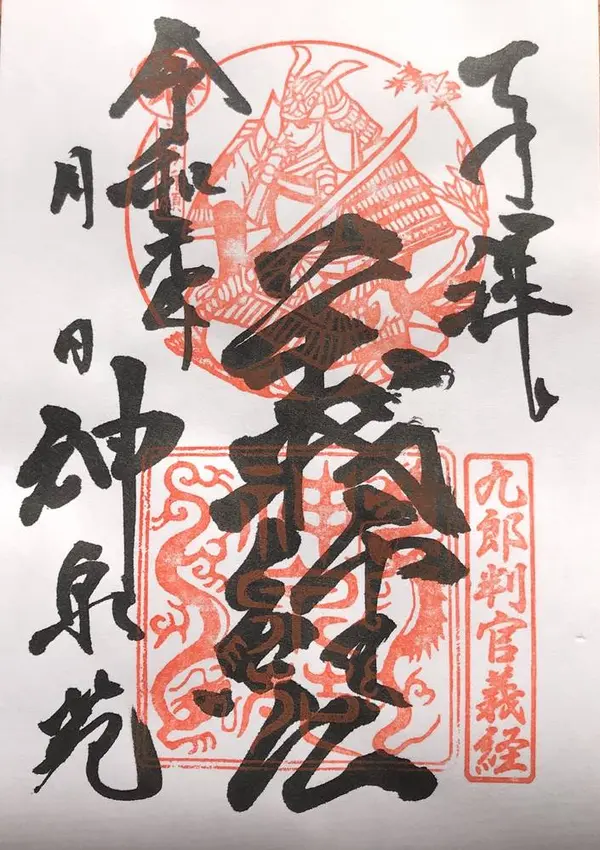 奉拝
九郎判官義経
義経公
令和 年
月 日
神泉苑